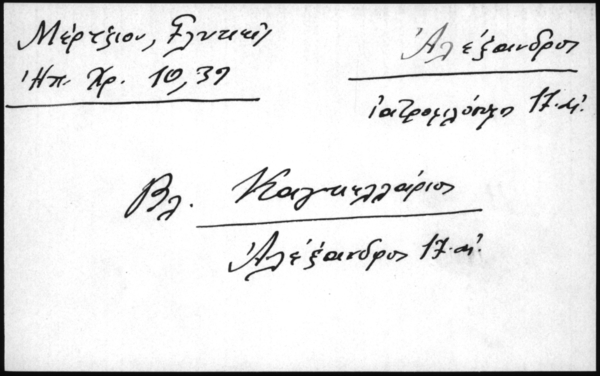 Μέρτζιου,
Ἠπ. Χρ. 10, 39
Ἀλέξανδρος
ἰατροφιλόσοφος 17. αἰ.
Βλ. Καγκελλάριος
Ἀλέξανδρος 17. αἰ.